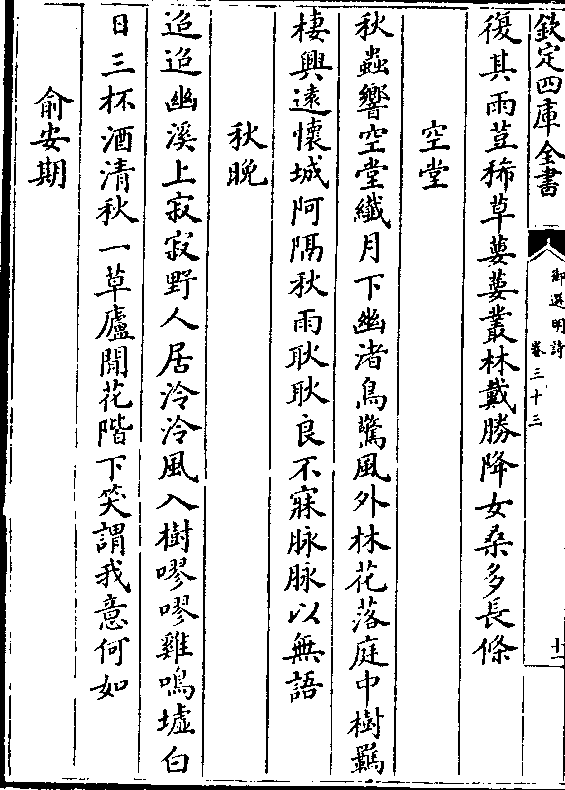 欽定四庫全書
御選明詩
卷三十三
十一
復其雨荳稀草蔞蔞叢林戴勝降女桑多長條
空堂
秋蟲響空堂纖月下幽渚鳥驚風外林花落庭中樹羈
棲興遠懷城阿隔秋雨耿耿良不寐脉脉以無語
秋晚
迢迢幽溪上寂寂野人居泠泠風入樹嘐嘐雞鳴墟白
日三杯酒清秋一草廬閒花階下笑謂我意何如
俞安期